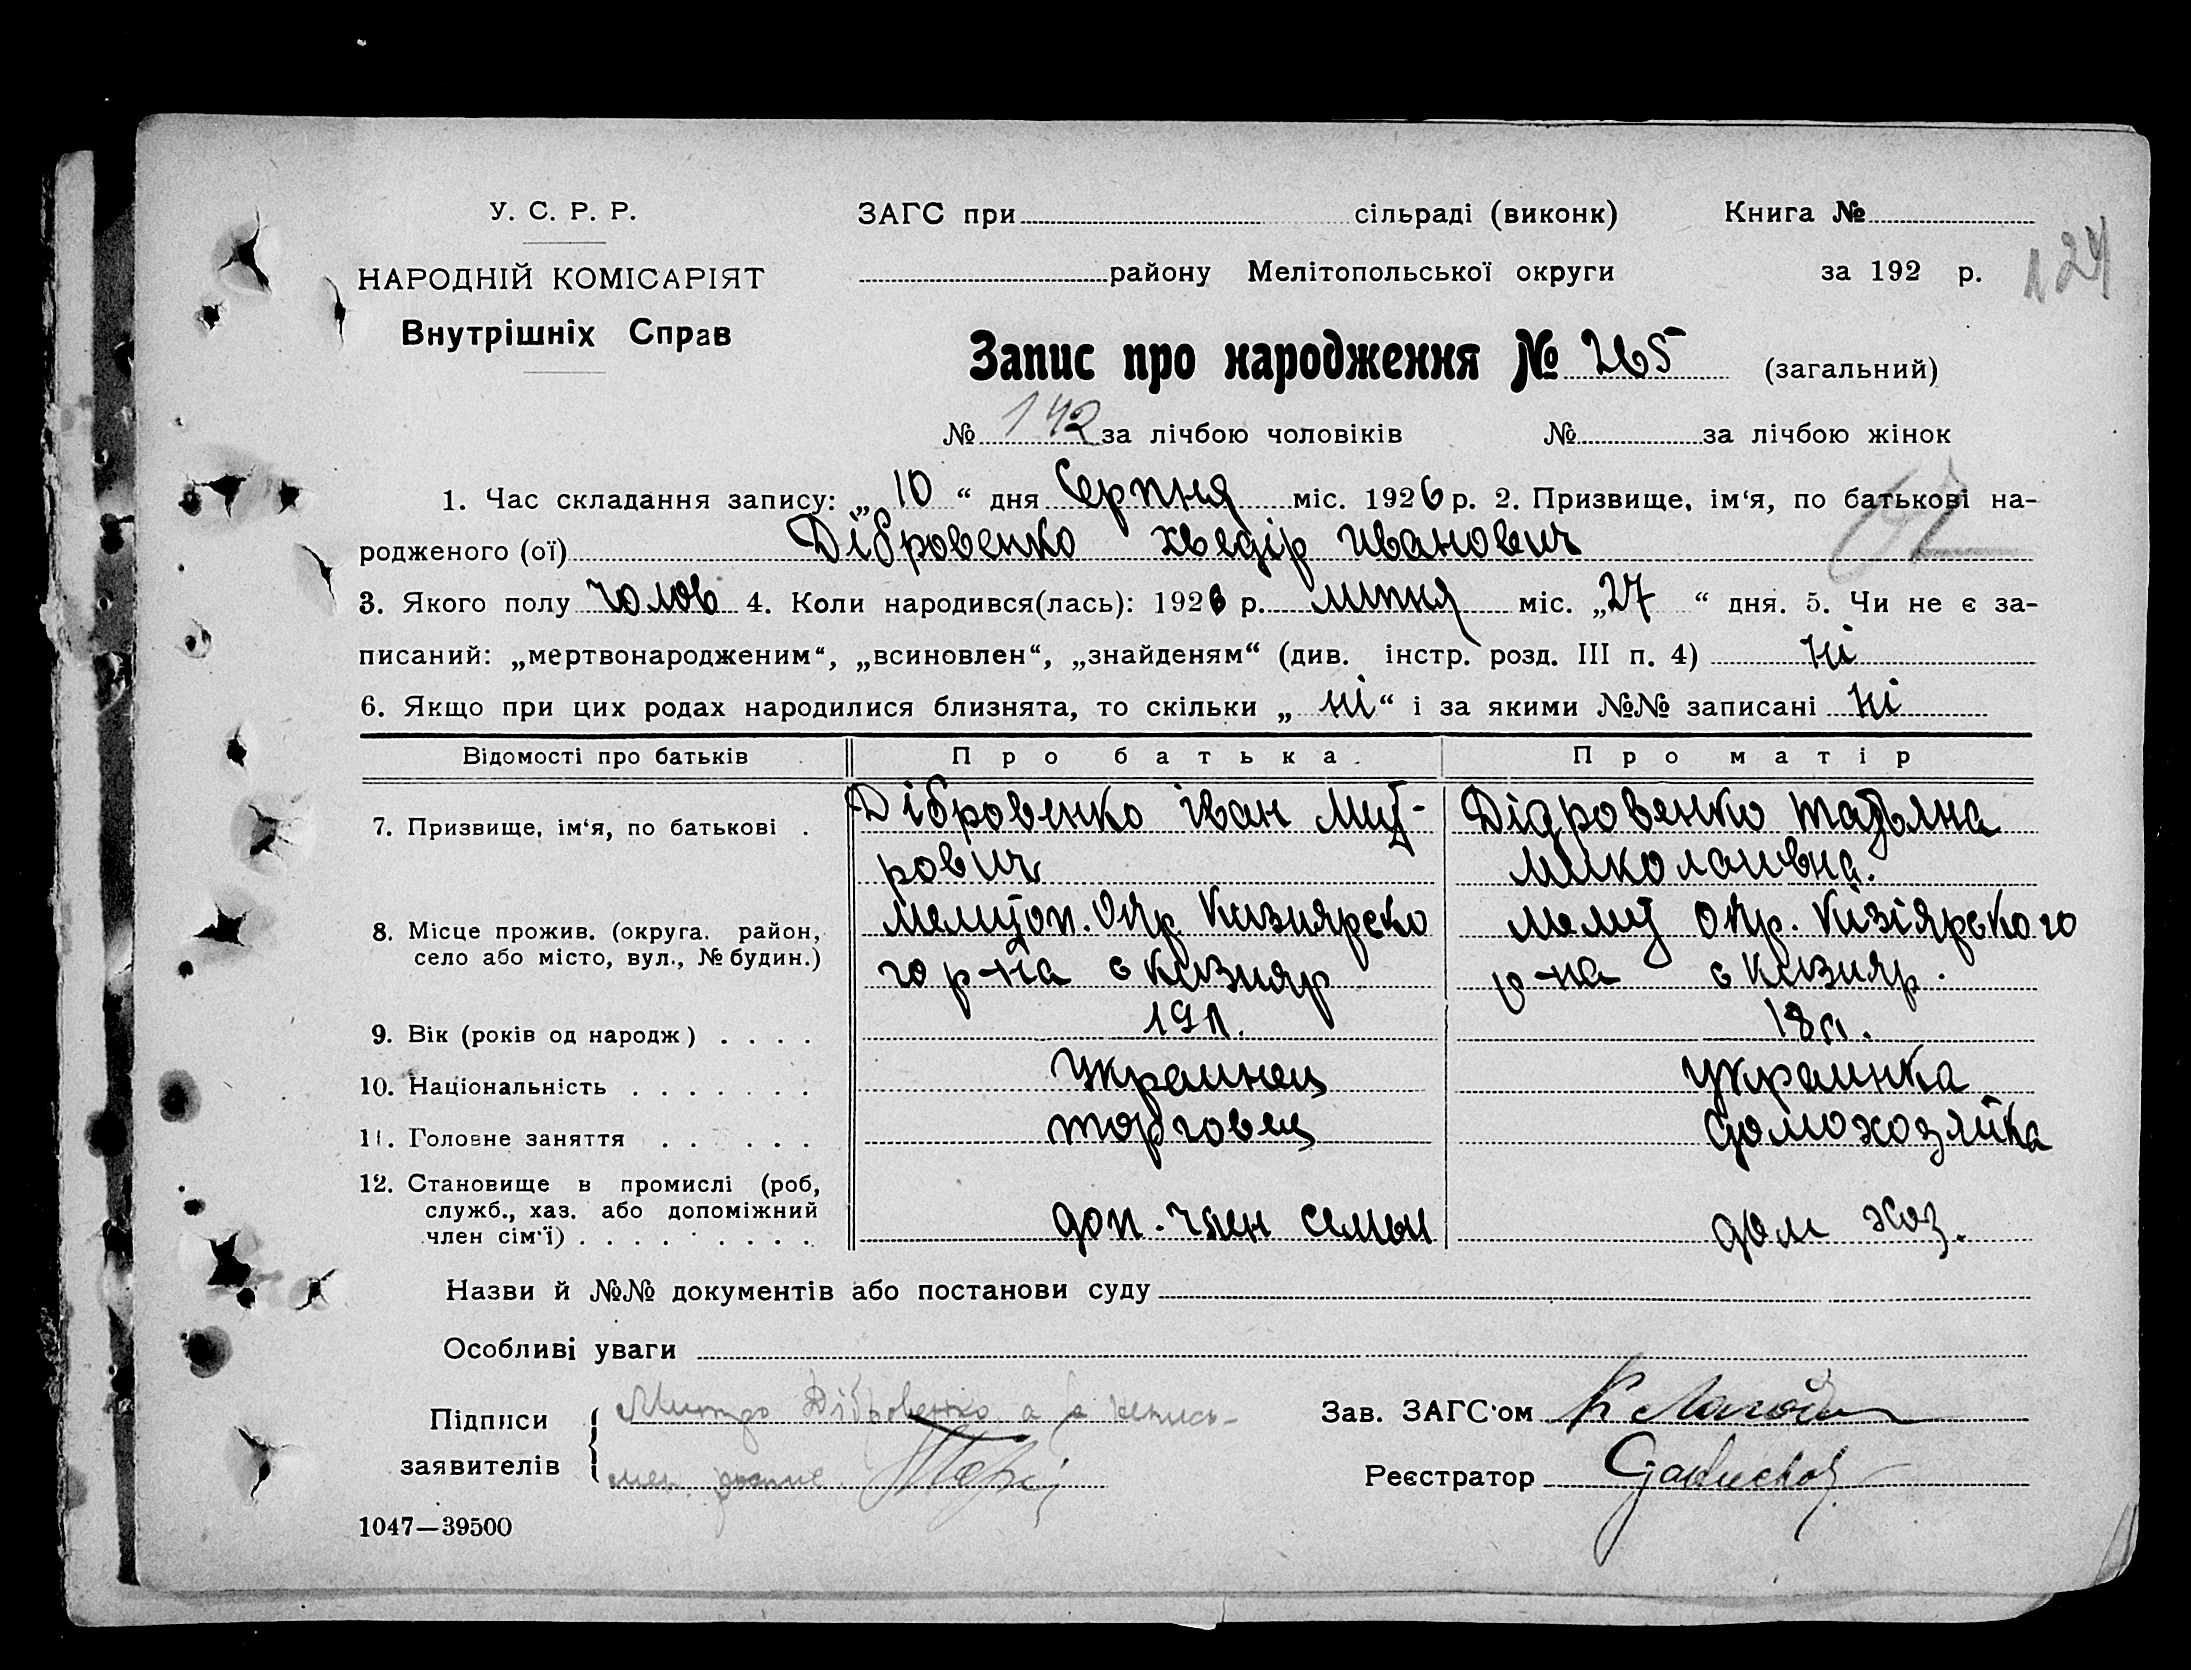 У. С. Р. Р.
НАРОДНІЙ КОМІСАРІЯТ
Внутрішніх Справ
ЗАГС при сільраді (виконк) Книга №
району Мелітопольської округи за 192 р.
124
Запис про народження № 265 (загальний)
№ 142 за лічбою чоловіків № за лічбою жінок
1. Час складання запису: „ 10 “ дня Серпня міс. 1926 р. 2. Призвище, ім‘я, по батькові на-
родженого (ої) Дібровенко хведір иванович
3. Якого полу чолов 4. Коли народився(лась): 1926 р. липня міс. „27 “ дня. 5. Чи не є за-
писаний: „мертвонародженим“, „всиновлен“, „знайденям“ (див. інстр. розд. III п. 4) ні
6. Якщо при цих родах народилися близнята, то скільки „ ні “ і за якими №№ записані ні
Відомості про батьків Про батька. Про матір
7. Призвище, ім‘я, по батькові . Дібровенко іван Мит- Дідровенко татьяна
рович миколаивна.
8. Місце прожив. (округа. район, мелитоп. Окр. Кизиярско мелит окр. Кизіярского
село або місто, вул., № будин.) го р-на с кизияр р-на с кизияр.
9. Вік (років од народж) . . . . 19л. 18л.
10. Національність . . . . . . . украинец украинка
11. Головне заняття . . . . . . торговец домохозяйка
12. Становище в промислі (роб,
служб., хаз. або допоміжний доп. член семьи дом хоз.
член сім‘ї) . . . . . . . . .
Назви й №№ документів або постанови суду
Особливі уваги
Підписи Дібровенко
заявителів
Зав. ЗАГС‘ом
Реєстратор
1047—39500